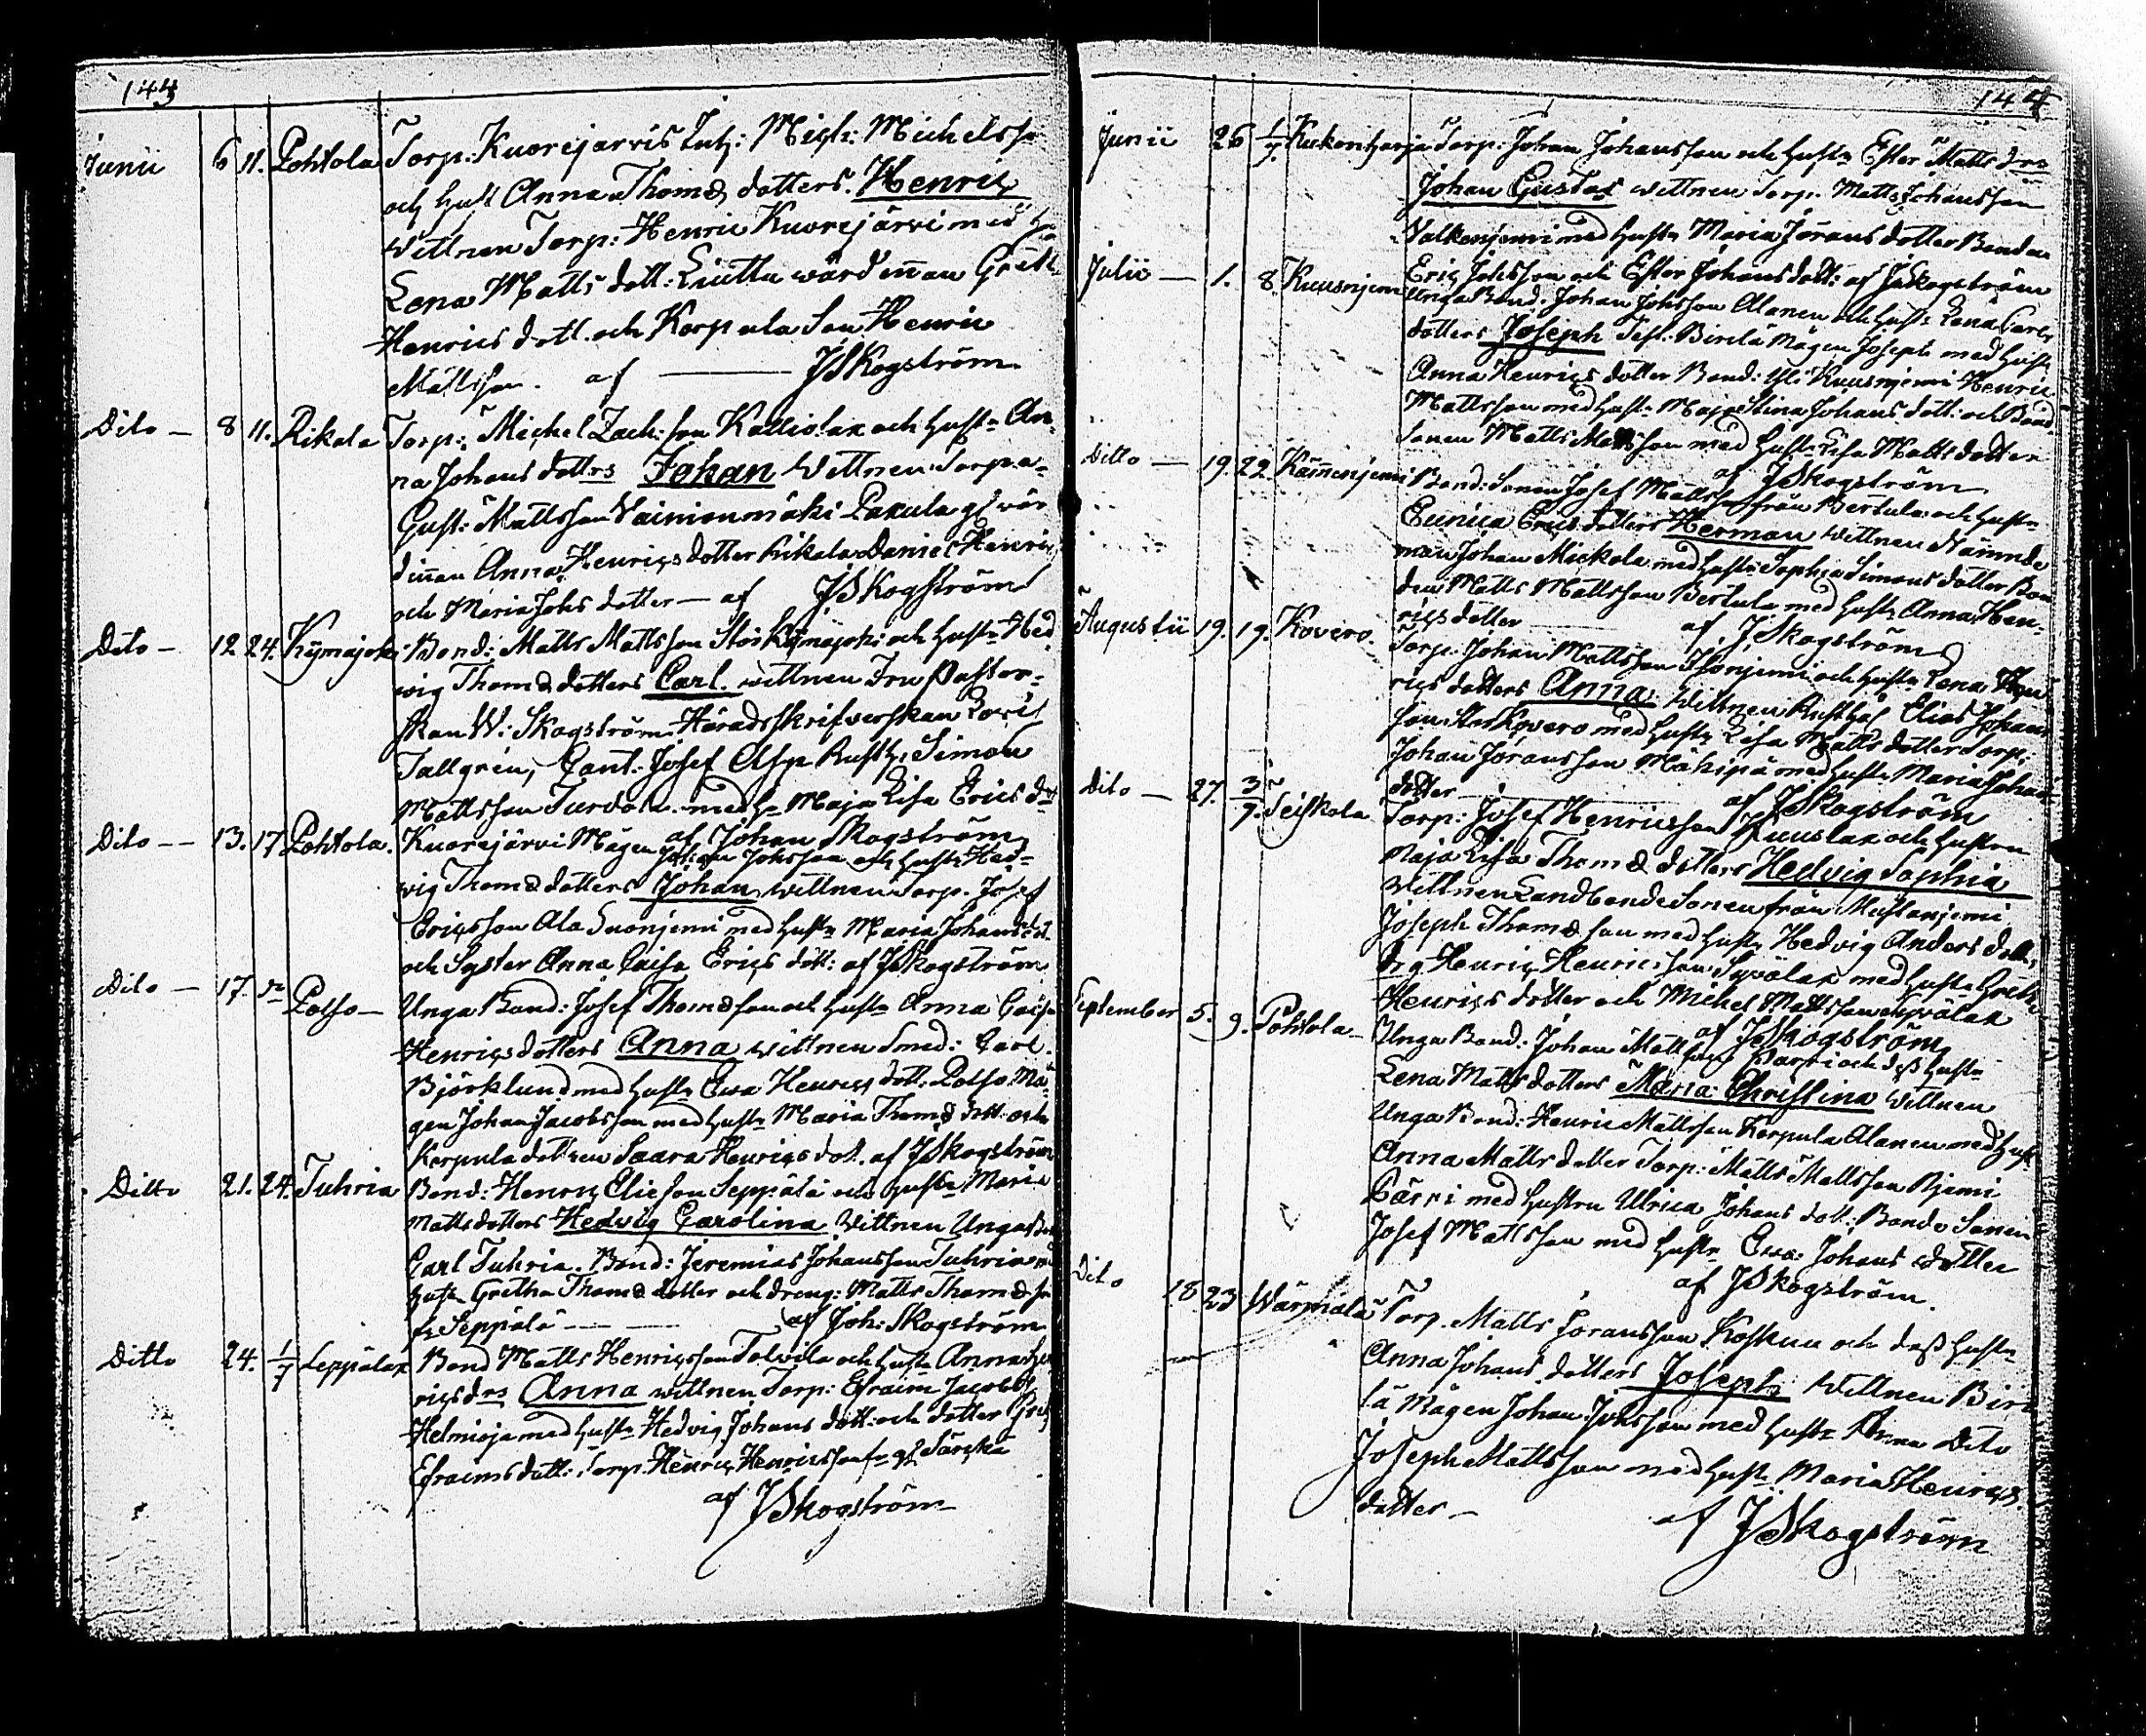 143
Junii 6 11. Pohtola Torp: Kuorejarvis Inh: Mich: Michelss
och hust Anna Thomæ dotters. Henric
Wittnen Torp: Henric Kuorejärvi med h
Lena Matts dott: wärdinnan Greth
Henrics dott. och Korpula Son Henric
Mattsson. af — JSkogström
Dito — 8 11. Rikala Torp: Michel Zach:son Kalliolax och hustr An=
na Johans dottrs Johan Wittnen Torpa=
Gust: Mattsson Vainionmäki Pakula gl wär
dinnan Anna Henrics dotter Rikala Daniel Henric
och Maria Johs dotter — af JSkogström
Dito — 12 24. Kymajoki Bond: Matts Mattsson Stor Kymajoki och hustr Hed
wig Thomæ dotters Carl. wittnen Fru Pastor=
skan W: Skogström Häradsskrifverskan Lovis
Tallgren, Cant: Josef Alfr Rusth: Simon
Mattsson Turdola med h Maja Lisa Erics dr
af Johan Skogström
Dito — 13. 17 Pohtola. Kuorejärvi Mågen Johan Johsson och hustr Hed=
wig Thomæ dotters Johan wittnen Torp. Josef
Ericsson Ala Suonjemi med hustr Maria Johans dott
och Syster Anna Caisa Erics dott: af JSkogström
Dito — 17. do Potso — Unga Bond: Josef Thomæson och hustr Anna Caisa
Henrics dotters Anna wittnen Smed: Carl
Björklund med hustr Ewa Henrics dott. Potso Må
gen Johan Jacobsson med hustr Maria Thomæ dott. och
Korpula dottren Saara Henrics dot. af JSkogström
Ditto 21. 24. Tuhria Bond: Henric Elieson Seppälä och hustr Maria
Matts dotters Hedvig Carolina Wittnen Unga
Carl Tuhria. Bond: Jeremias Johansson Tuhria
hustr Gretha Thomæ dotter och dreng: Matts Thomæ
fr Seppälä — af Joh: Skogström
Ditto 24. 1/7 Leppälax Bond Matts Henricsson Tolvila och hustr Anna
rics drs Anna wittnen Torp: Efraim Jacobss
Helmioja med hustr Hedvig Johans dott: och dotter
Efraims dott: Torp. Henric Henricsson fr
af JSkogström
144
Junii 26 1/7. Kukonharja Torp: Johan Johansson och hustr Ester Matts drs
Johan Gustaf wittnen Torp. Matts Johansson
Valkenjemi med hustr Maria Jörans dotter Bonden
Eric Johsson och Ester Johans dott: af JSkogström
Julii — 1. 8. Kuusnjemi Unga Bond. Johan Johsson Alanen och hustr Lena Carls
dotters Joseph Test. Birilä Mågen Joseph med hustr
Anna Henrics dotter Bond: Yli Kuusnjemi Henric
Mattsson med hustr Maja Stina Johans dott: och Bond
Sonen Matts Mattsson med hustr Lisa Matts dotter
af JSkogström
Ditto — 19. 22. Kämmenjemi Bond: Sonen Josef Mattsson från Bertula och hustr
Eunica Erics dotters Herman wittnen Nämnde
man Johan Mickola med hustr Sophia Simons dotter Bon
den Matts Mattsson Bertula med hustr Anna Hen=
rics dotter — af JSkogström
Augustii 19. 19. Kovero. Torp. Johan Mattsson och hustr Lena Hen
rics dotters Anna Wittnen Rusth: Elias Johans
son Stor Kovero med hustr Lisa Matts dotter Torp:
Johan Joransson Mäkipä med hustr Maria Johans
dotter — af JSkogström
Dito — 27. 3/9. Teiskola Torp: Josef Henricsson Kuuslax och hustru
Maja Lisa Thomæ dotters Hedvig Sophia
Wittnen Landbonde Sonen från Mustanjemi
Joseph Thomæson med hustr Hedvig Anders dotter
Drg Henric Henricsson Syvälax med hustr Greta
Henrics dotter och Michel Mattsson Syvälax
af JSkogström
September 5. 9. Pohtola — Unga Bond: Johan Mattsson Parri och dess hustr
Lena Matts dotters Maria Christina Wittnen
Unga Bond: Henric Mattsson Korpula Alanen med hust
Anna Matts dotter Torp: Matts Mattsson Njemi
Pärri med hustru Ulrica Johans dott: Bonde Sonen
Josef Mattsson med hustr Ewa: Johans dotter
af JSkogström.
Dito 18. 23 Wärmälä Torp. Matts Joransson Koskuu och dess hustr
Anna Johans dotters Joseph Wittnen Biri
lä Mågen Johan Johsson med hustr Anna Dito
Joseph Mattsson med hustr Maria Henrics
dotter — af JSkogström